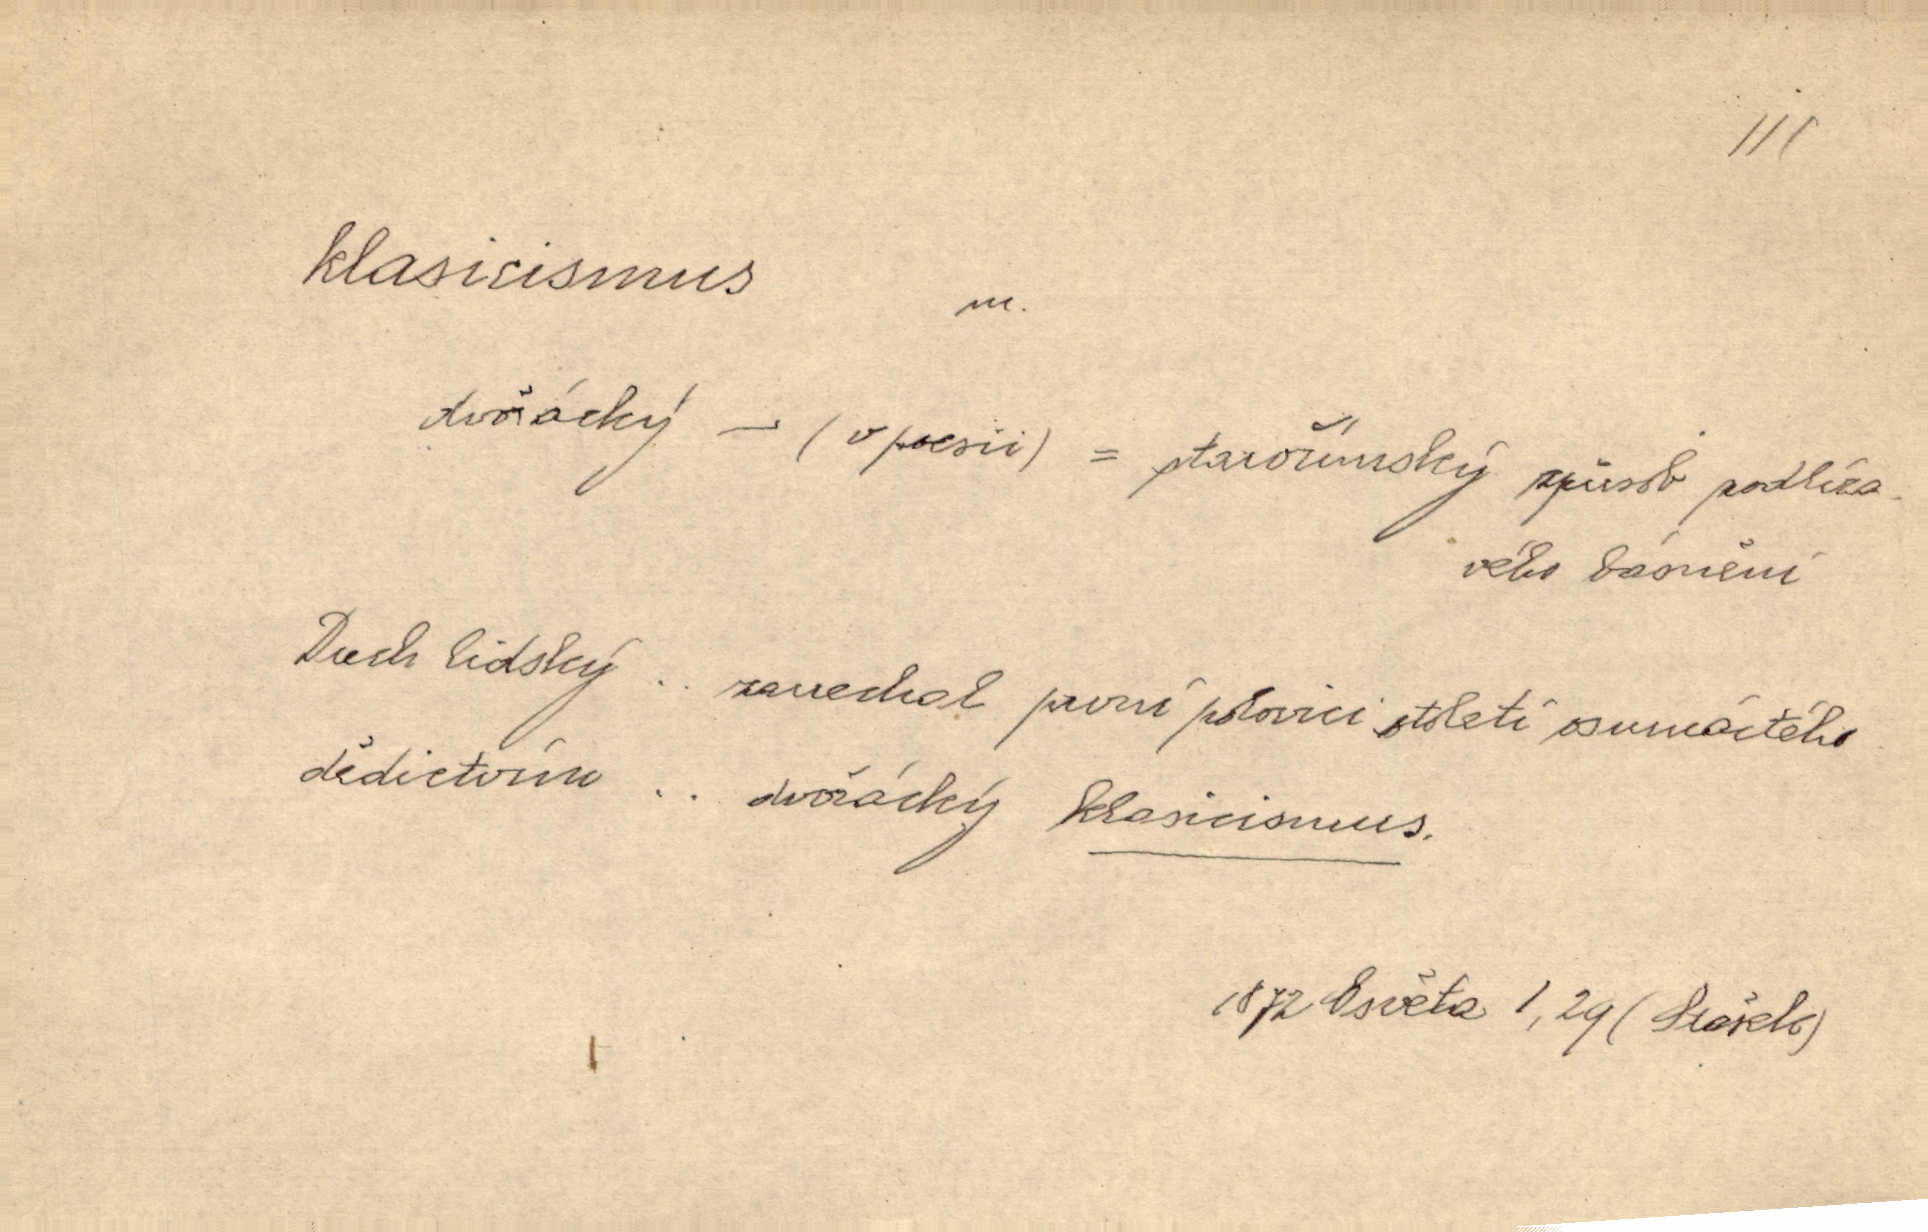 III
klasicismus m.
dvořácký – (v poesii) = starořímský způsob podlíza-
vého básnění
Duch lidský .. zanechal první polovici století osmnáctého
dědictvím .. dvořácký klasicismus.
1872 Osvěta 1, 29 (